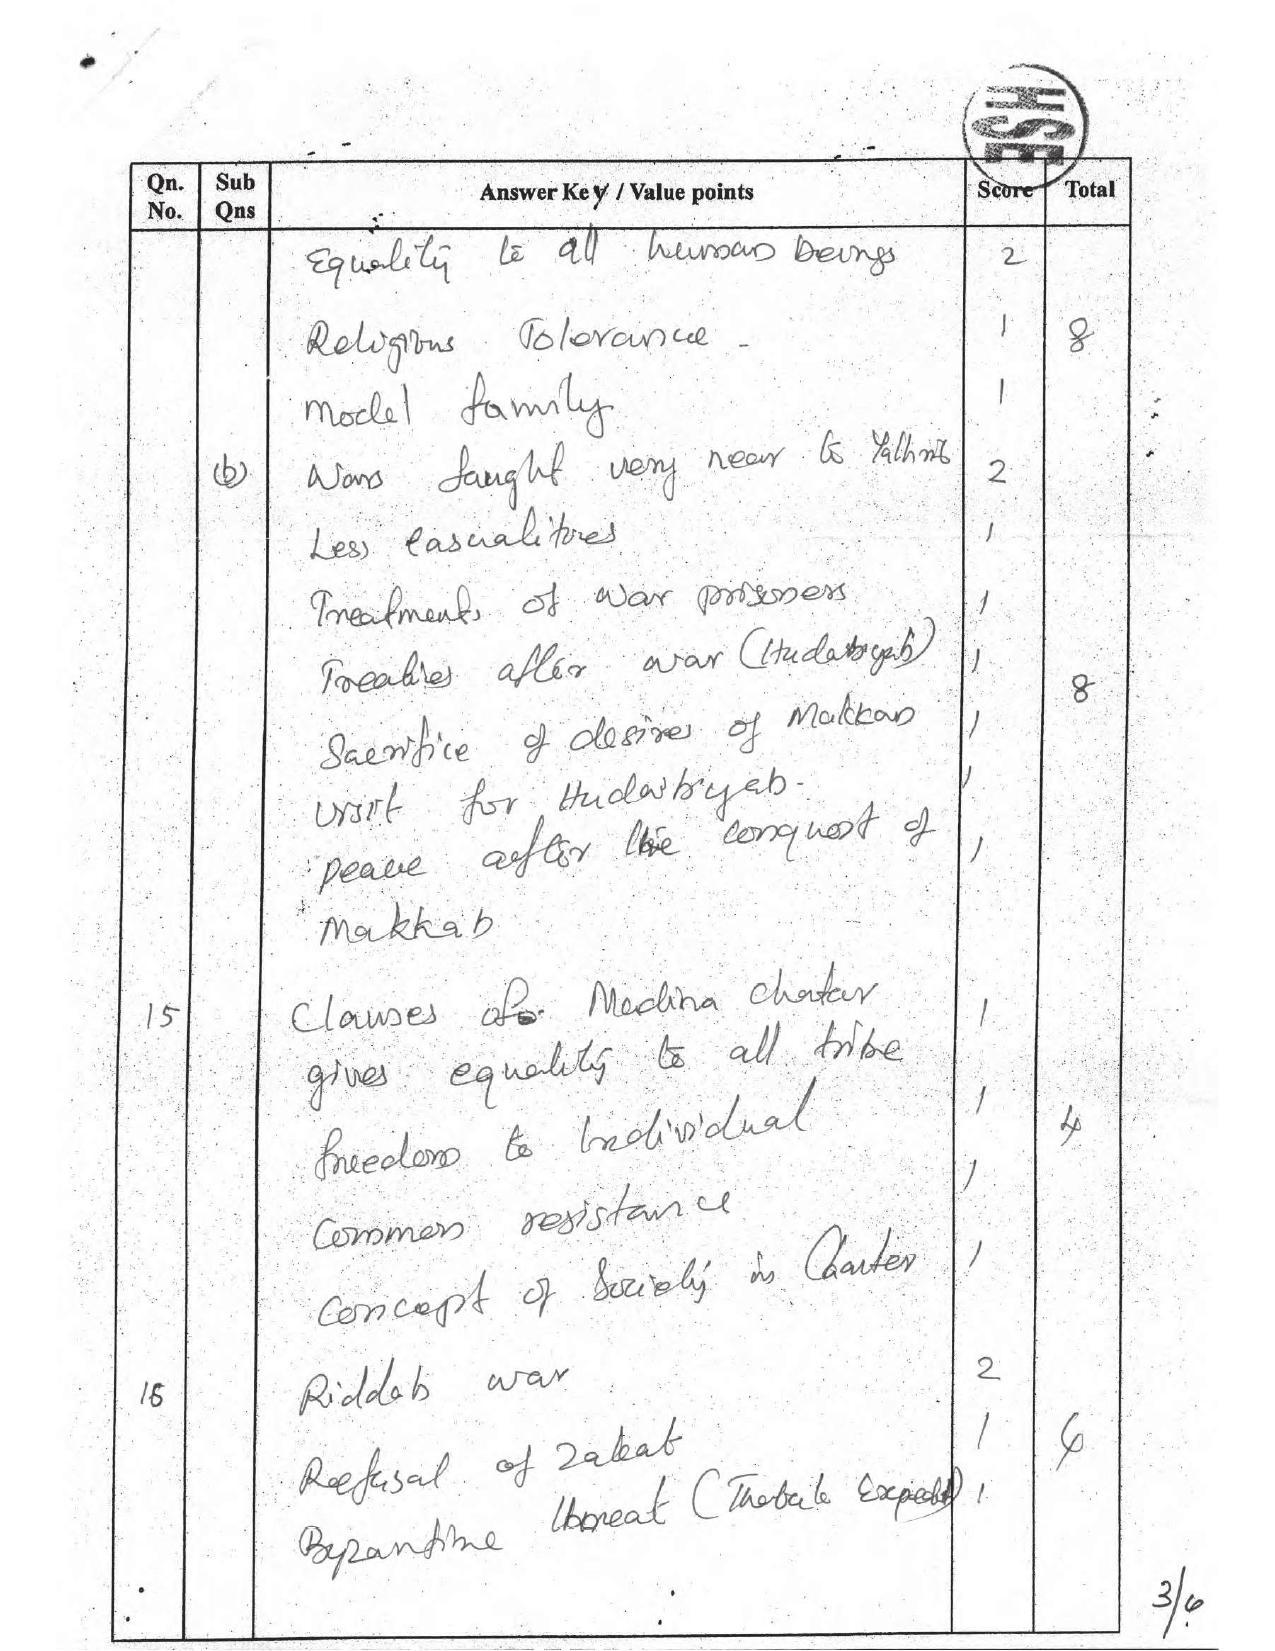 HSE
Qn. No. Sub Qns Answer Key / Value points Score Total
Equality to all human beings 2
Religious Tolerance - 1 8
Model family 1
(b) Wars faught very near to Yathrib 2
Less casualities 1
Treatments of war prisoners 1
Treaties after war (Hudaibiyah) 1
8
Sacrifice of desires of Makkan 1
visit for Hudaibiyah. 1
peace after the conquest of 1
Makkah
15 Clauses of Medina chatar 1
gives equality to all tribe
freedom to Individual 1 4
Common resistance 1
Concept of Society in Charter 1
16 Riddah war 2
Reefusal of Zakat 1
Byzantine threat 1
3/6